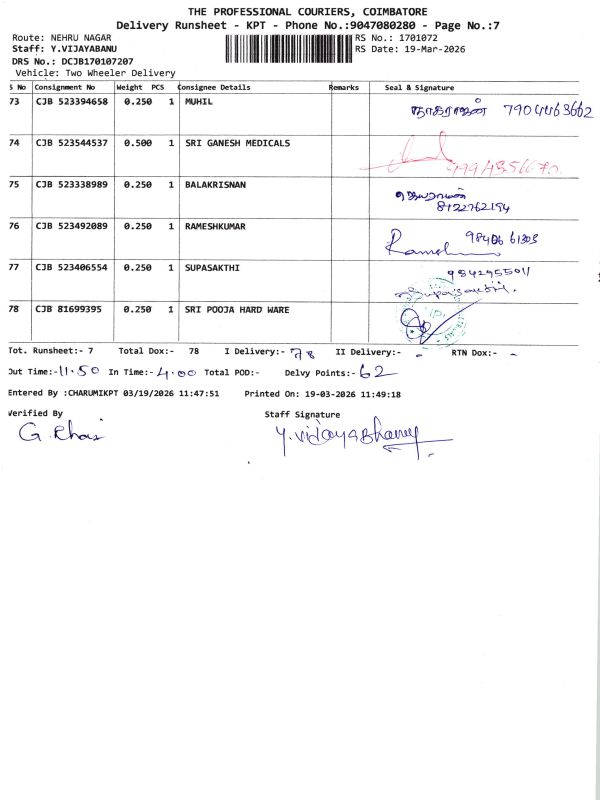 THE PROFESSIONAL COURIERS, COIMBATORE
Delivery Runsheet - KPT - Phone No.:9047080280 - Page No.:7
Route: NEHRU NAGAR
RS No.: 1701072
Staff: Y.VIJAYABANU
RS Date: 19-Mar-2026
DRS No.: DCJB170107207
Vehicle: Two Wheeler Delivery
S No Consignment No Weight PCS Consignee Details Remarks Seal & Signature
73 CJB 523394658 0.250 1 MUHIL நாகராஜன் 7904463662
74 CJB 523544537 0.500 1 SRI GANESH MEDICALS
75 CJB 523338989 0.250 1 BALAKRISNAN
8122762194
76 CJB 523492089 0.250 1 RAMESHKUMAR 98406 61303
Ramesh
77 CJB 523406554 0.250 1 SUPASAKTHI 9842955011
78 CJB 81699395 0.250 1 SRI POOJA HARD WARE
Tot. Runsheet:- 7 Total Dox:- 78 I Delivery:- 78 II Delivery:- - RTN Dox:- -
Out Time:- 11.50 In Time:- 4.00 Total POD:- Delvy Points:- 62
Entered By :CHARUMIKPT 03/19/2026 11:47:51 Printed On: 19-03-2026 11:49:18
Verified By Staff Signature
Y.VIJAYABhanu